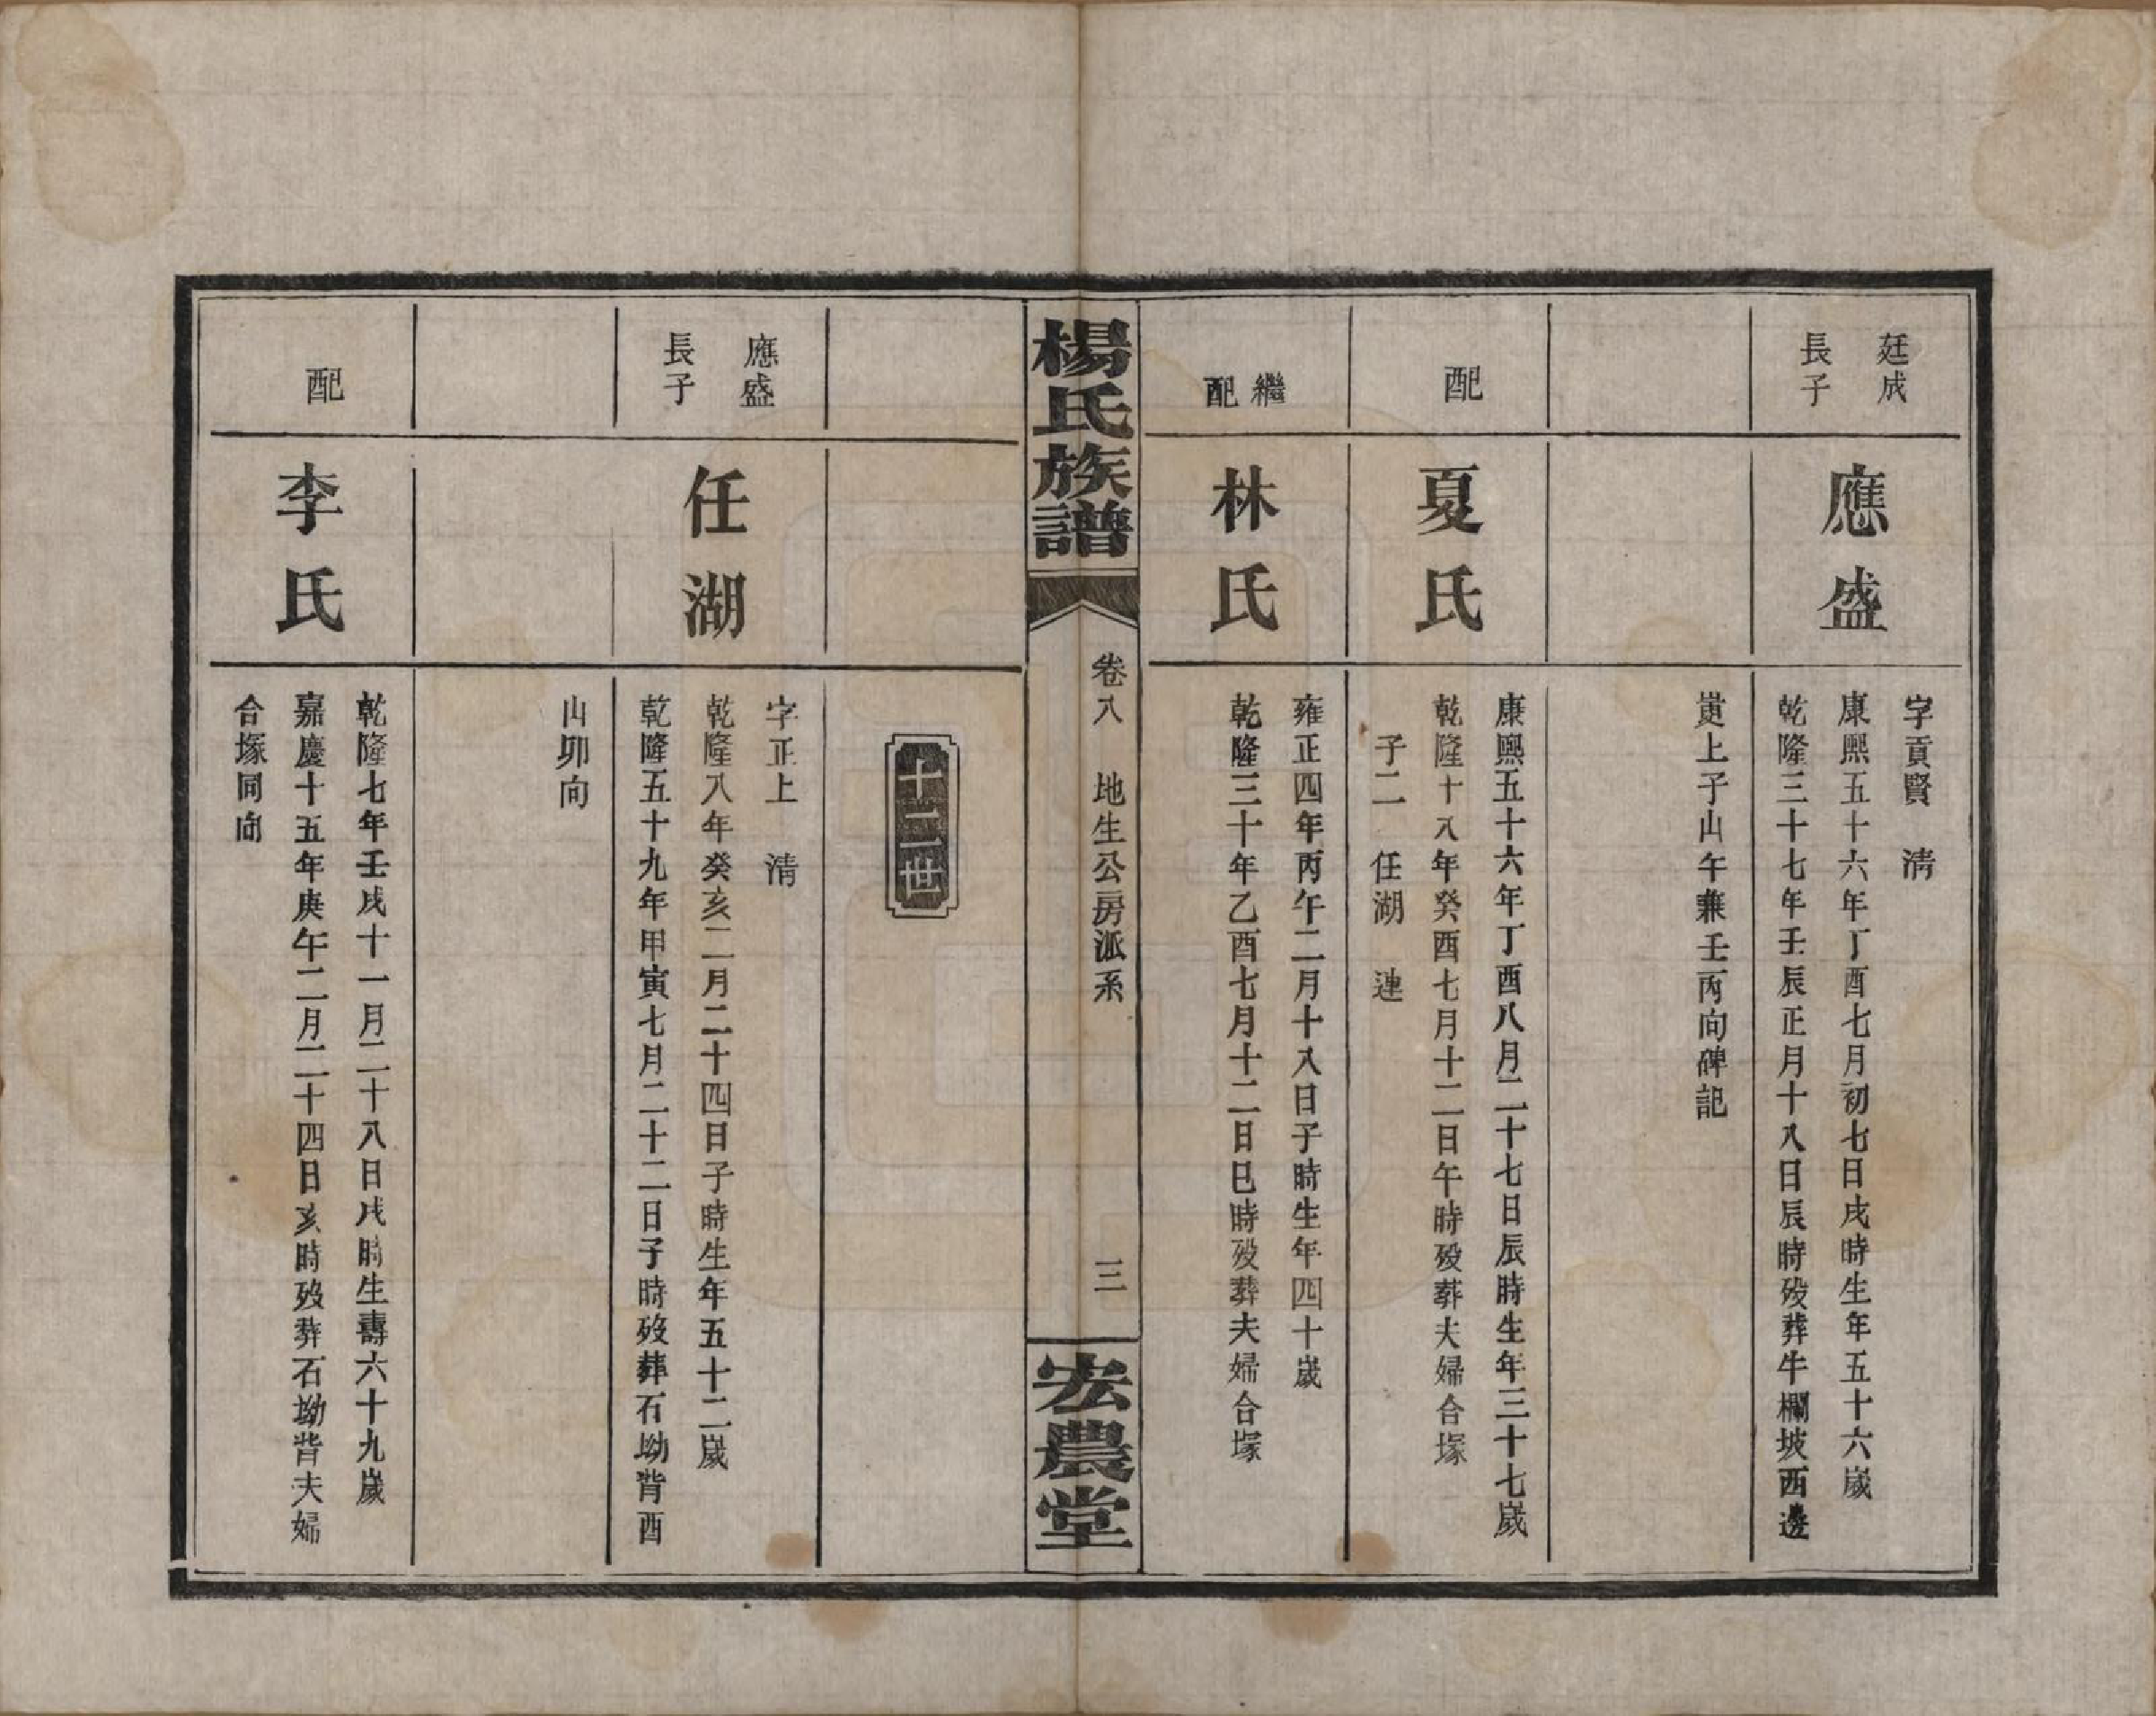 廷成
長子
應盛
字貢賢　清
康熙五十六年丁酉七月初七日戌時生年五十六歲
乾隆三十七年壬辰正月十八日辰時歿葬牛欄坡西邊
嵏上子山午兼壬丙向碑記
配
夏氏
康熙五十六年丁酉八月二十七日辰時生年三十七歲
乾隆十八年癸酉七月十二日午時歿葬夫婦合塚
子二　任湖　連
繼
配
林氏
雍正四年丙午二月十八日子時生年四十歲
乾隆三十年乙酉七月十二日巳時歿葬夫婦合塚
楊氏族譜
卷八　地生公房派系
三
宏農堂
十二世
應盛
長子
任湖
字正上　清
乾隆八年癸亥二月二十四日子時生年五十二歲
乾隆五十九年甲寅七月二十二日子時歿葬石坳背酉
山卯向
配
李氏
乾隆七年壬戌十一月二十八日戌時生壽六十九歲
嘉慶十五年庚午二月二十四日亥時歿葬石坳背夫婦
合塚同向